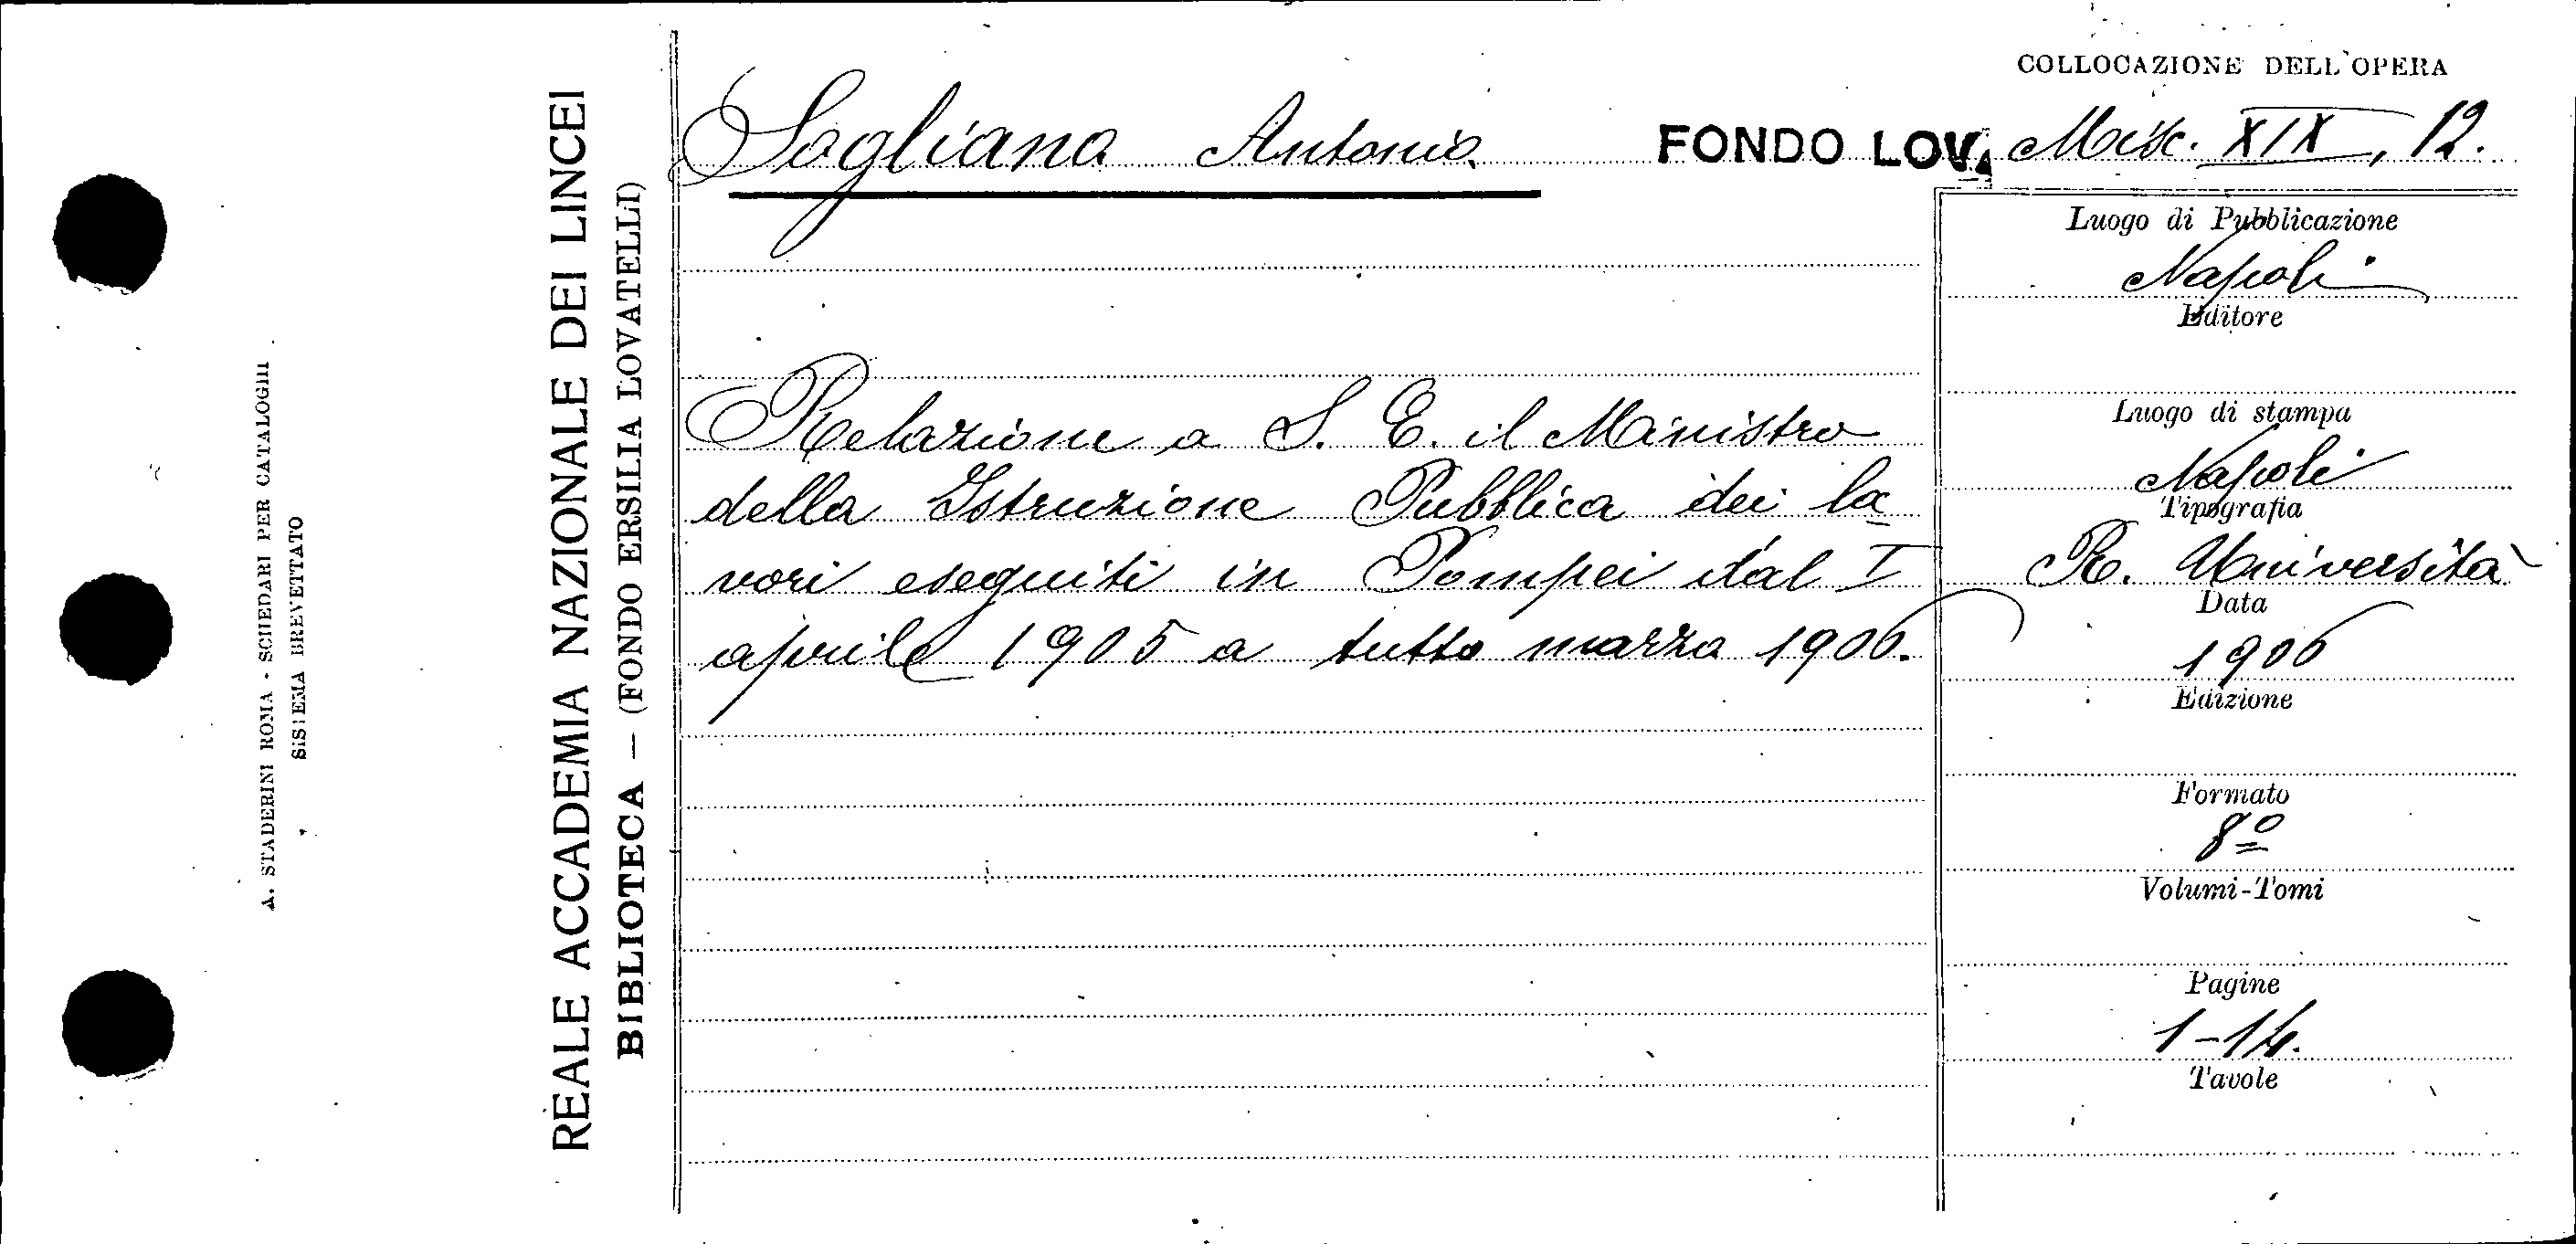 A. STADERINI ROMA - SCHEDARI PER CATALOGHI
SISTEMA BREVETTATO
REALE ACCADEMIA NAZIONALE DEI LINCEI
BIBLIOTECA — (FONDO ERSILIA LOVATELLI)
COLLOCAZIONE DELL'OPERA
Sogliano Antonio
FONDO LOV. Misc. XIX, 12.
Relazione a S. E. il Ministro
della Istruzione Pubblica dei la
vori eseguiti in Pompei dal I
aprile 1905 a tutto marzo 1906.
Luogo di Pubblicazione
Napoli
Editore
Luogo di stampa
Napoli
Tipografia
R. Università
Data
1906
Edizione
Formato
8º
Volumi-Tomi
Pagine
1-14.
Tavole